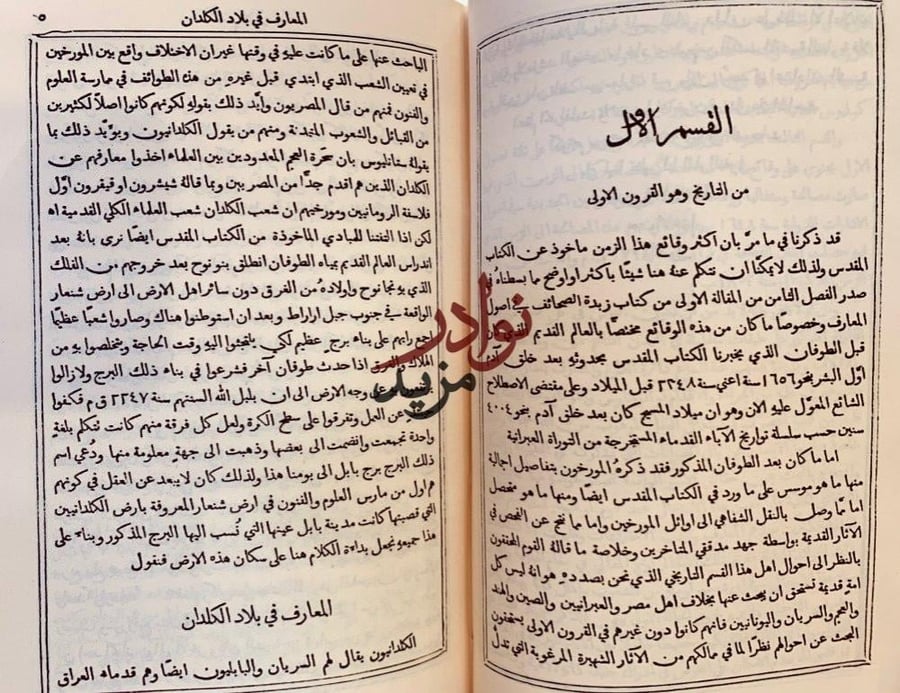 القسم الاول
من التاريخ وهو القرون الاولى
قد ذكرنا في ما مرّ بان أكثر وقائع هذا الزمن ماخوذ عن الكتاب
المقدس ولذلك لا يمكنّا ان نتكلم عنهُ هنا شيئًا باكثر او اوضح ما بسطناهُ في
صدر الفصل الثامن من المقالة الاولى من كتاب زبدة الصحائف في اصول
المعارف وخصوصًا ما كان من هذه الوقائع مختصًا بالعالم القديم
قبل الطوفان الذي يخبرنا الكتاب المقدس بحدوثهِ بعد خلق آدم
اوّل البشر بنحو ١٦٥٦ سنة اعني سنة ٢٢٤٨ قبل الميلاد وعلى مقتضى الاصطلاح
الشائع المعوّل عليهِ الآن وهو ان ميلاد المسيح كان بعد خلق آدم بنحو ٤٠٠٤
سنين حسب سلسلة تواريخ الآباء القدماء المستخرجة من التوراة العبرانية
اما ما كان بعد الطوفان المذكور فقد ذكرهُ المورخون بتفاصيل اجمالية
منها ما هو موسس على ما ورد في الكتاب المقدس ايضًا ومنها ما هو متحصل
اما مّا وصل بالنقل الشفاهي الى اوائل المورخين واما مما نتج عن الفحص في
الآثار القديمة بواسطة جهد مدققي المتاخرين وخلاصة ما قالهُ القوم المحققون
بالنظر الى احوال اهل هذا القسم التاريخي الذي نحن بصددهِ هو انهُ ليس كل
امةٍ قديمة تستحق ان يبحث عنها بخلاف اهل مصر والعبرانيين والصين والهند
والعجم والسريان واليونانيين فانهم كانوا دون غيرهم في القرون الاولى يستحقون
البحث عن احوالهم نظرًا لما في مآلكهم من الآثار الشهيرة المرغوبة التي تدلّ
المعارف في بلاد الكلدان
٥
الباحث عنها على ما كانت عليهِ في وقتها غير ان الاختلاف واقع بين المورخين
في تعيين الشعب الذي ابتدى قبل غيرهِ من هذه الطوائف في ممارسة العلوم
والفنون فمنهم من قال المصريون وأيّد ذلك بقولهِ لكونهم كانوا اصلاً لكثيرين
من القبائل والشعوب المتمدنة ومنهم من يقول الكلدانيون ويويّد ذلك بما
يقولهُ ستانليوس بان سحَرة العجم المعدودين بين العلماء اخذوا معارفهم عن
الكلدان الذين هم اقدم جدًّا من المصريين وبما قالهُ شيشرون او قيقرون اوّل
فلاسفة الرومانيين ومورخهم ان شعب الكلدان شعب العلماء الكلي القدمية اه
لكن اذا التفتنا للمبادي الماخوذة من الكتاب المقدس ايضًا نرى بانهُ بعد
اندراس العالم القديم بمياه الطوفان انطلق بنو نوح بعد خروجهم من الفلك
الذي بهِ نجا نوح واولادهُ من الغرق دون سائر اهل الارض الى ارض شنعار
الواقعة في جنوب جبل اراراط وبعد ان استوطنوا هناك وصاروا شعبًا عظيمًا
اجمع رايهم على بناء برج عظيم لكي يلتجئوا اليهِ وقت الحاجة ويتخلصوا بهِ من
الهلاك والغرق اذا حدث طوفان آخر فشرعوا في بناء ذلك البرج ولا زالوا
على وجه الارض الى ان بلبل الله السنتهم سنة ٢٢٤٧ ق م فكفوا
عن العمل وتفرقوا على سطح الكرة ولعل كل فرقة منهم كانت تتكلم بلغةٍ
واحدة تجمعت وانضمت الى بعضها وذهبت الى جهةٍ معلومة منها ودُعي اسم
ذلك البرج برج بابل الى يومنا هذا ولذلك كان لا يبعد عن العقل في كونهم
هم اول من مارس العلوم والفنون في ارض شنعار المعروفة بارض الكلدانيين
التي قصبتها كانت مدينة بابل عينها التي نُسب اليها البرج المذكور وبناءً على
هذا جميعهِ نجعل بداءة الكلام هنا على سكان هذه الارض فنقول
المعارف في بلاد الكلدان
الكلدانيون يقال لهم السريان والبابليون ايضًا وهم قدماء العراق
نوادر
مزيد